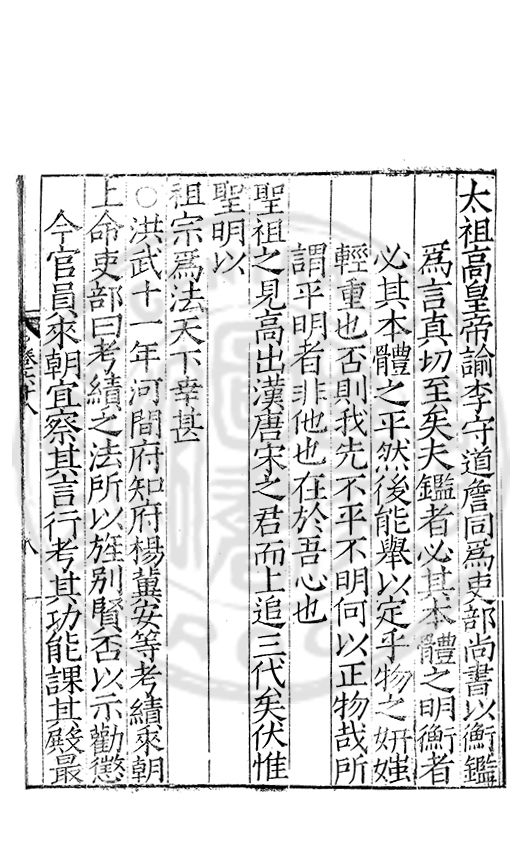 太祖高皇帝諭李守道詹同爲吏部尚書以衡鑑
爲言真切至矣夫鑑者必其本體之明衡者
必其本體之平然後能舉以定乎物之妍媸
輕重也否則我先不平不明何以正物哉所
謂平明者非他也在於吾心也
聖祖之見高出漢唐宋之君而上追三代矣伏惟
聖明以
祖宗爲法天下幸甚
○洪武十一年河間府知府楊冀安等考績來朝
上命吏部曰考績之法所以旌别賢否以示勸懲
今官員來朝宜察其言行考其功能課其殿最
卷六十八 八